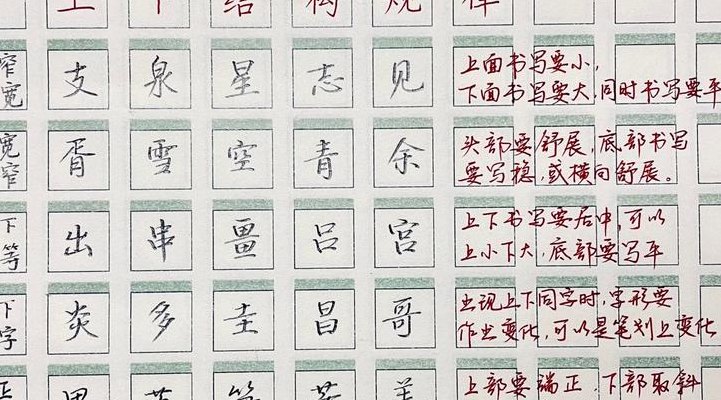 上下结构规律
窄 支泉星志见 上面书写要小,
宽 下面书写要大,同时书写要平
宽 胥雪空青余 头部要舒展,底部书写
窄 要写稳,或横向舒展。
下 出串畺吕宫 上下书写要居中,可以
等 上小下大,底部要写平
下 炎多圭昌哥 出现上下同字时,字形要
字 作出变化,可以是笔划上变化
正 上部要端正,下部取斜